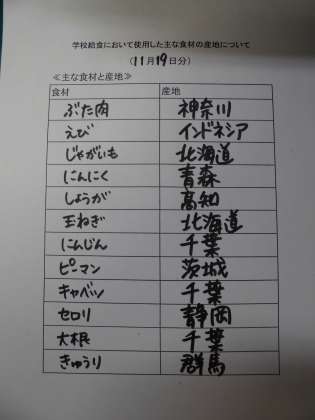 学校給食において使用した主な食材の産地について
(11月19日分)
≪主な食材と産地≫
食材 産地
ぶた肉 神奈川
えび インドネシア
じゃがいも 北海道
にんにく 青森
しょうが 高知
玉ねぎ 北海道
にんじん 千葉
ピーマン 茨城
キャベツ 千葉
セロリ 静岡
大根 千葉
きゅうり 群馬